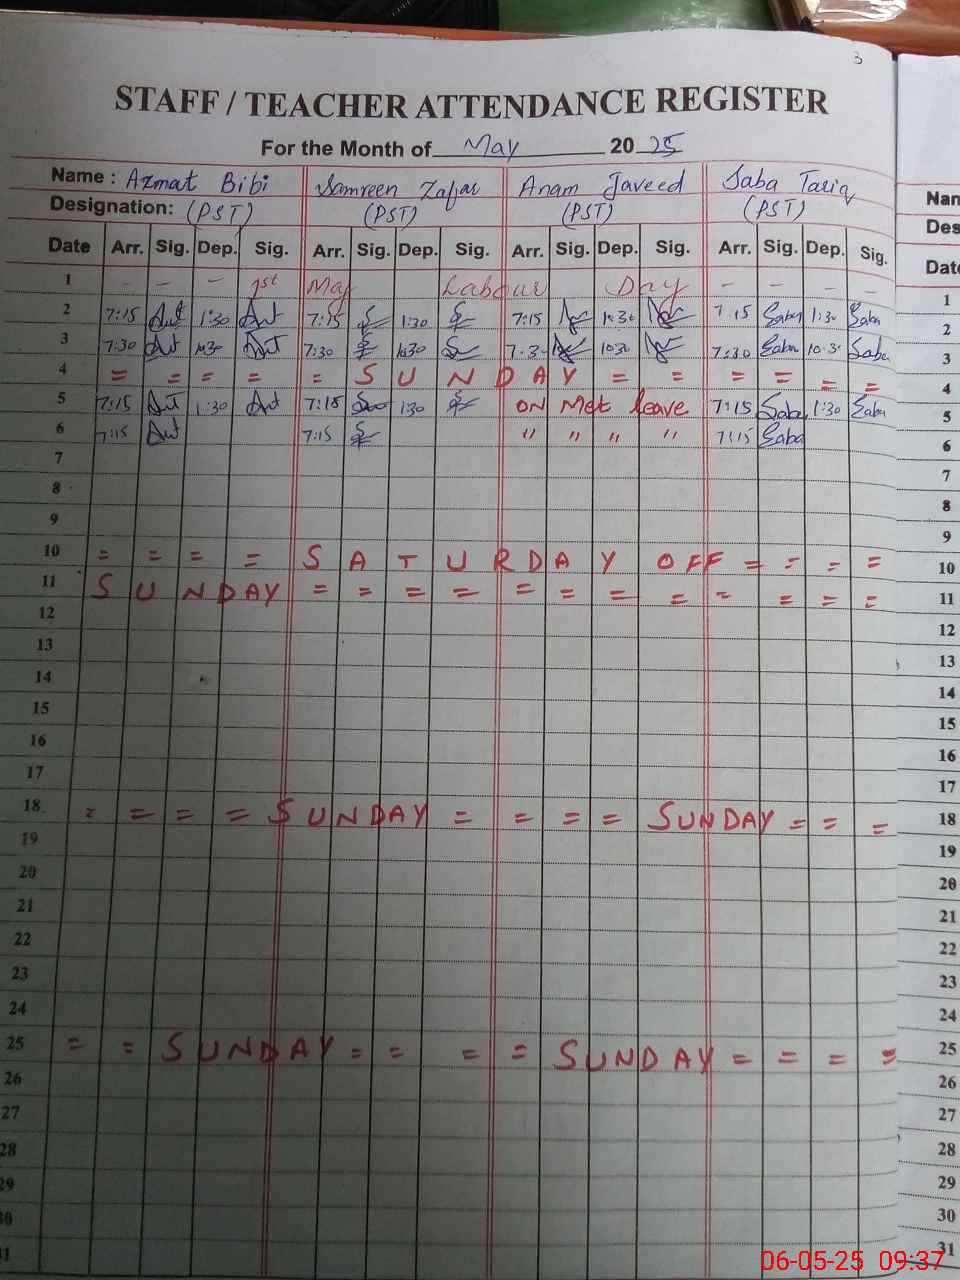 3
STAFF / TEACHER ATTENDANCE REGISTER
For the Month of May 2025
Name : Azmat Bibi Samreen Zafar Anam Javeed Saba Tariq
Designation: (PST) (PST) (PST) (PST)
Date Arr. Sig. Dep. Sig. Arr. Sig. Dep. Sig. Arr. Sig. Dep. Sig. Arr. Sig. Dep. Sig.
1 - - - 1st May Labour Day - - - -
2 7:15 1:30 7:15 1:30 7:15 1:30 7:15 Saba 1:30 Saba
3 7:30 10:30 7:30 10:30 7:30 10:30 7:30 Saba 10:30 Saba
4 = = = = = SUNDAY = = = = = =
5 7:15 1:30 7:15 1:30 ON Met leave 7:15 Saba 1:30 Saba
6 7:15 7:15 " " " " 7:15 Saba
7
8
9
10 = = = = SATURDAY OFF = = = =
11 SUNDAY = = = = = = = = = = = =
12
13
14
15
16
17
18 = = = = SUNDAY = = = = SUNDAY = = =
19
20
21
22
23
24
25 = = SUNDAY = = = = SUNDAY = = = =
26
27
28
29
30
31
Nan
Des
Date
1
2
3
4
5
6
7
8
9
10
11
12
13
14
15
16
17
18
19
20
21
22
23
24
25
26
27
28
29
30
31
06-05-25 09:37